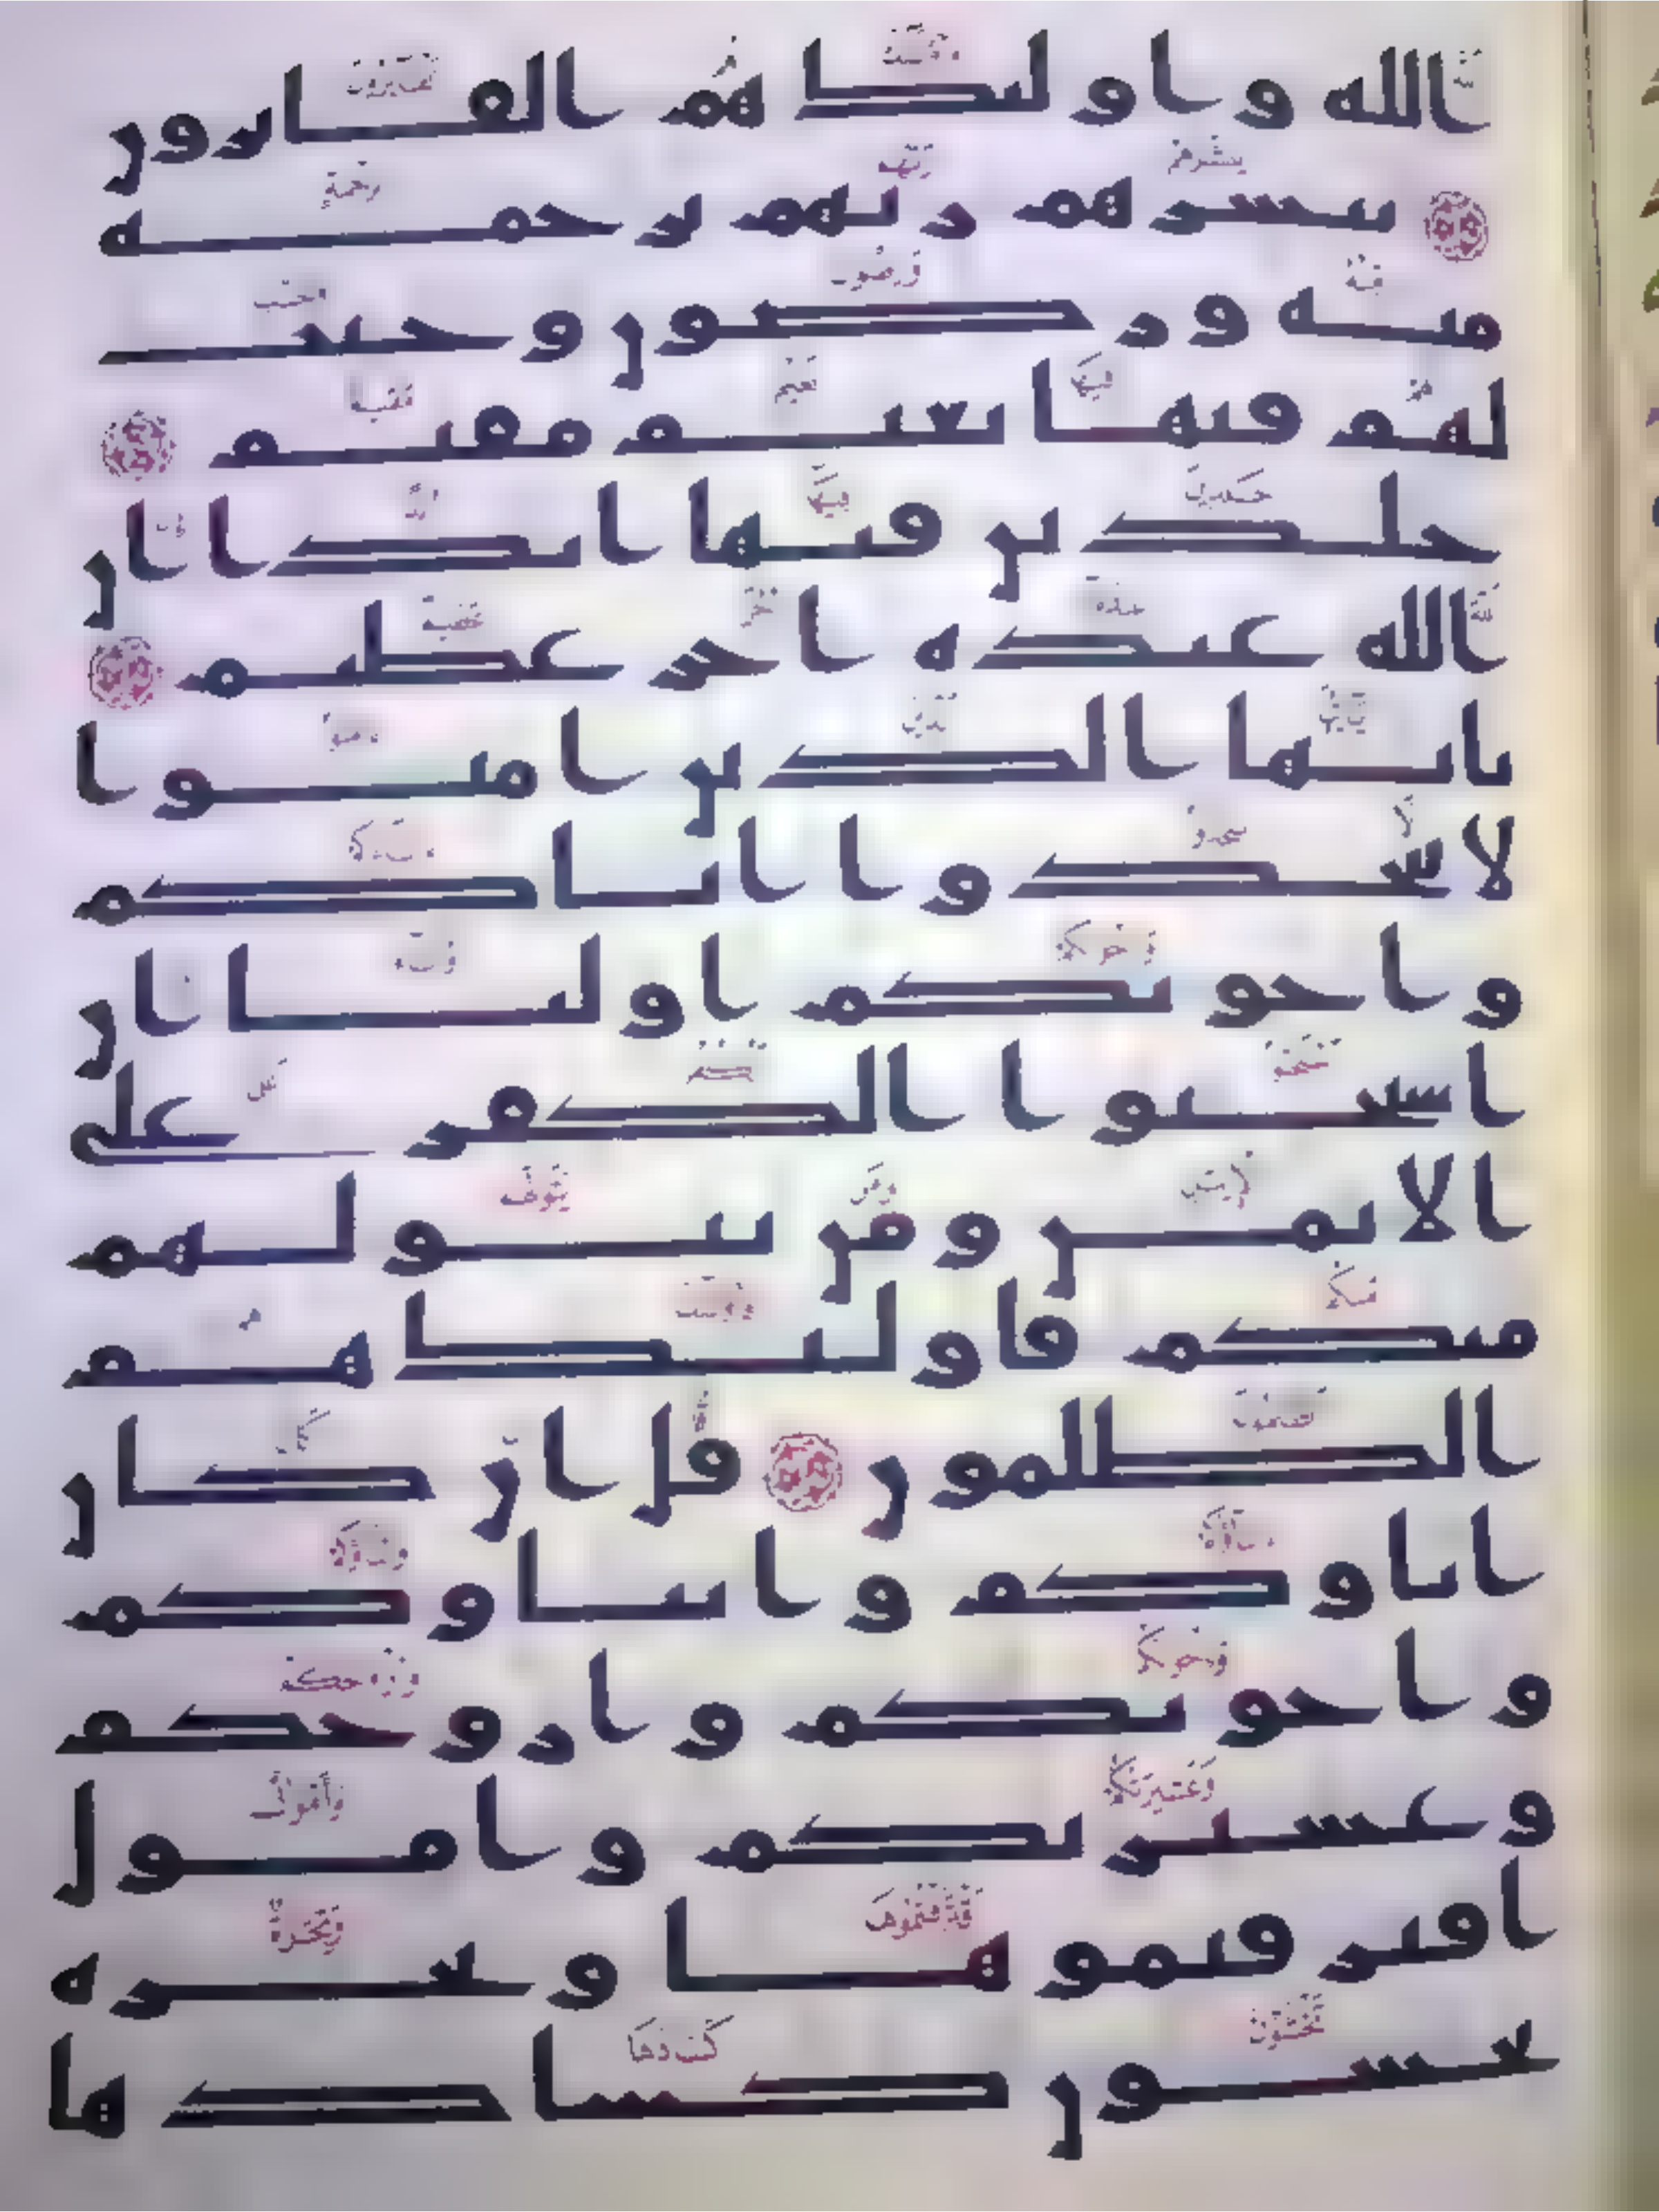 الله واولئك هم الفائزون
يبشرهم ربهم برحمة
منه ورضون وجنت
لهم فيها نعيم مقيم
خلدين فيها ابدا ان
الله عنده اجر عظيم
يايها الذين امنوا
لا تتخذوا اباكم
واخونكم اوليا ان
استحبوا الكفر على
الايمن ومن يتولهم
منكم فاولئك هم
الظلمون قل ان كان
اباوكم وابناوكم
واخونكم وازوجكم
وعشيرتكم وامول
اقترفتموها وتجرة
تخشون كسادها